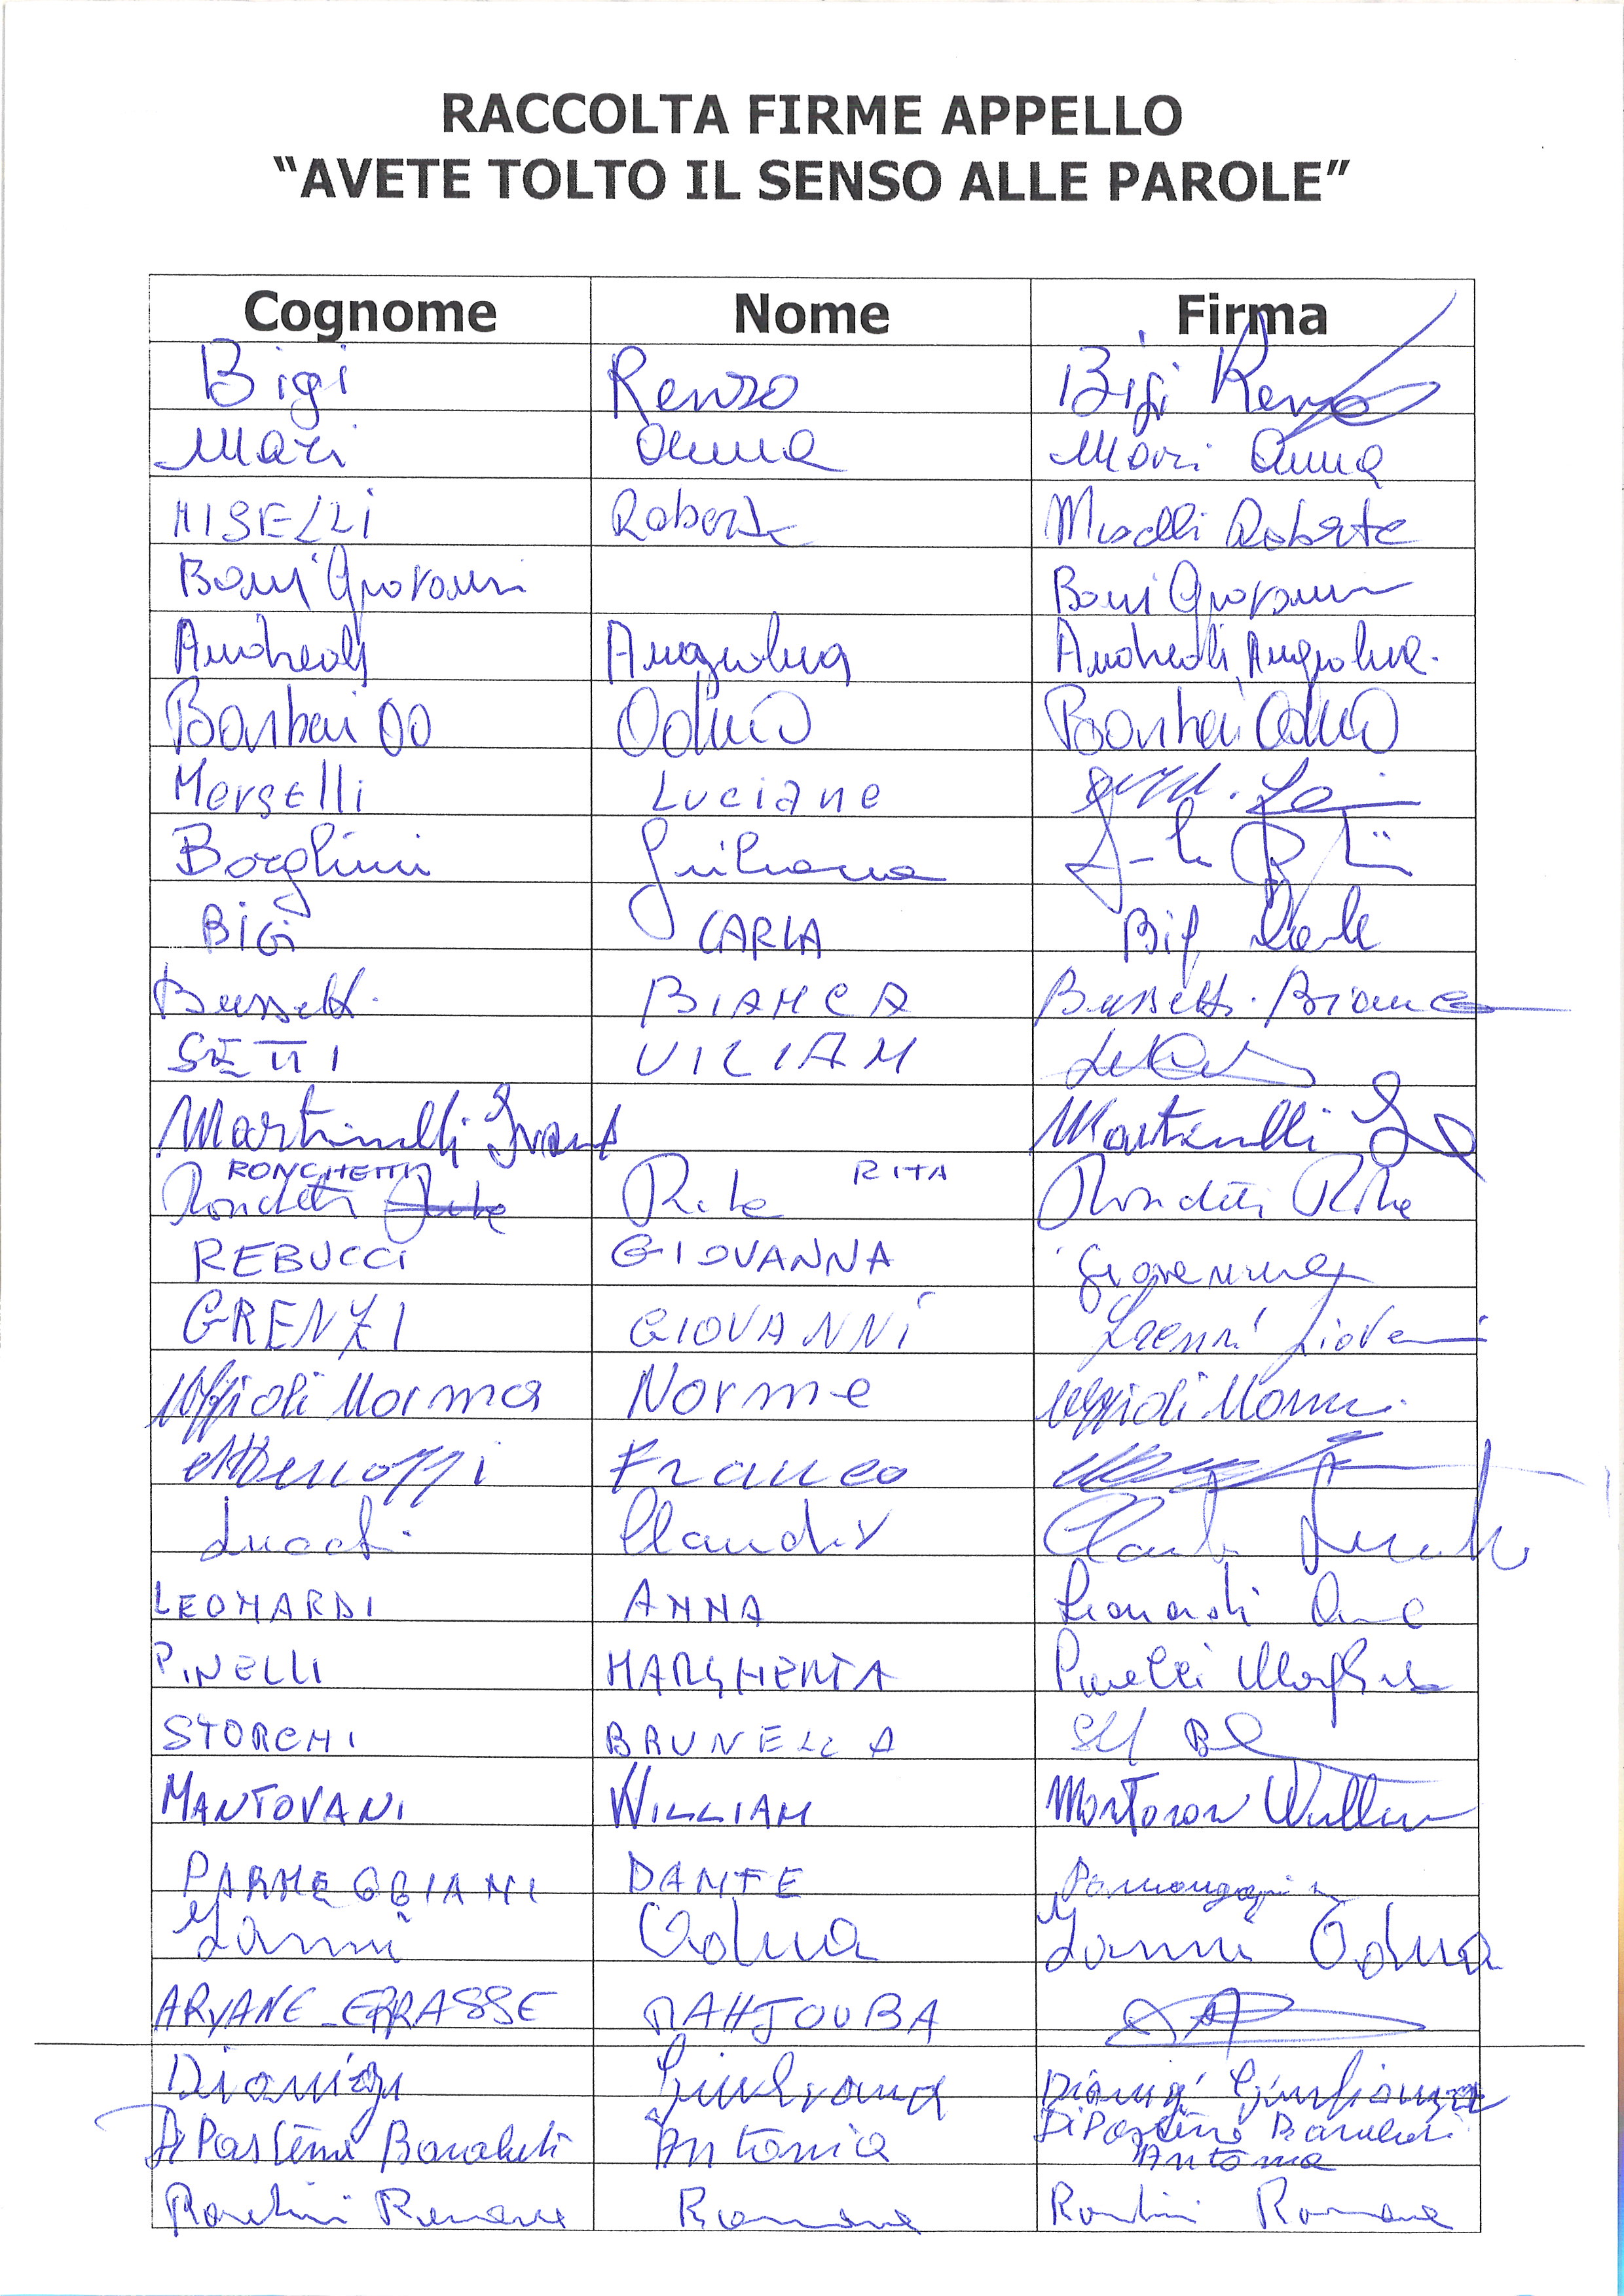 RACCOLTA FIRME APPELLO
“AVETE TOLTO IL SENSO ALLE PAROLE”
Cognome Nome Firma
Bigi Renzo Bigi Renzo
Mari Anna Mari Anna
MISELLI Roberta Miselli Roberta
Boni Giovanni Boni Giovanni
Andreoli Angiolina Andreoli Angiolina
Barbari Odino Barbari
Morselli Luciano
Borghini Giuliana
BIGI CARLA Bigi Carla
Bussetti BIANCA Bussetti Bianca
SETTI VILIAM
Martinelli Ivano Martinelli
RONCHETTI RITA
Ronchetti Rita Ronchetti Rita
REBUCCI GIOVANNA Giovanna
GRENZI GIOVANNI Grenzi Giovanni
Norma Norme
Franco
Claudio
LEONARDI ANNA Leonardi Anna
PINELLI MARGHERITA Pinelli Margherita
STORCHI BRUNELLA
MANTOVANI WILLIAM Mantovani William
PARMEGGIANI DANTE
Zanni Odina Zanni Odina
ARYANE-ERRASSE MAHJOUBA
Dionigi Giuliana Dionigi Giuliana
Antonia
Antonia
Romana Romana